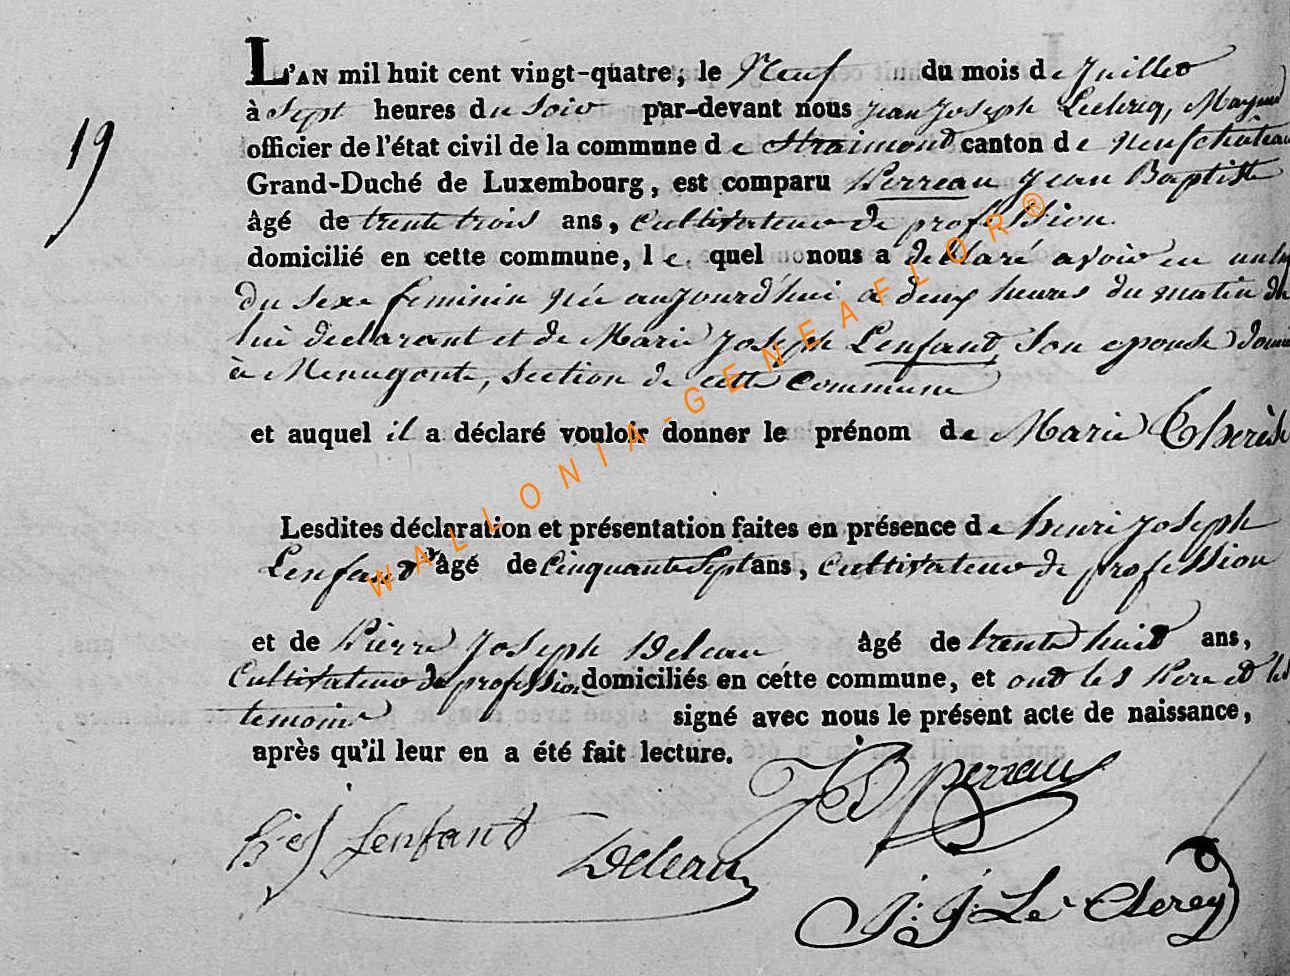 19
L'AN mil huit cent vingt-quatre, le Neuf du mois de Juillet
à Sept heures du Soir par-devant nous jean joseph Leclercq, Mayeur
officier de l'état civil de la commune de Straimont canton de neufchateau
Grand-Duché de Luxembourg, est comparu Perreau Jean Baptiste
âgé de trente trois ans, cultivateur de profession
domicilié en cette commune, le quel nous a declaré avoir eu
du sexe feminin née aujourd'hui a deux heures du matin de
lui declarant et de Marie Joseph Lenfant Son epouse
à Menugoutte, Section de cette commune
et auquel il a déclaré vouloir donner le prénom de Marie Therèse
Lesdites déclaration et présentation faites en présence de henri joseph
Lenfant âgé de cinquante Sept ans, cultivateur de profession
et de Pierre Joseph Deleau âgé de trente huit ans,
Cultivateur de profession domiciliés en cette commune, et ont les Pere et les
temoins signé avec nous le présent acte de naissance,
après qu'il leur en a été fait lecture.
JB perreau
Lenfant
Deleau
J: J: Le Clercq
WALLONIA-GENEAFLOR®